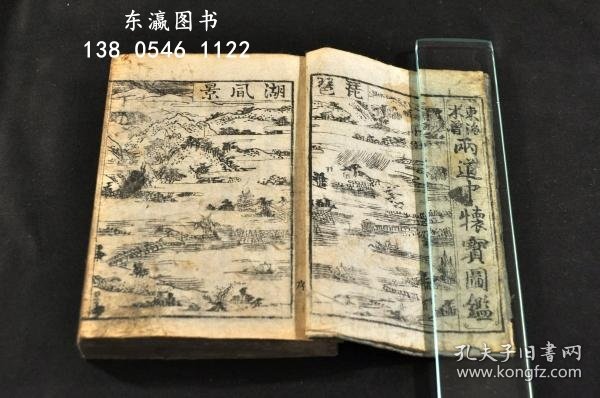 东瀛图书
138 0546 1122
琵琶
湖風景
東海
木曽
兩道中懐寶圖鑑
孔夫子旧書网
www.kongfz.com